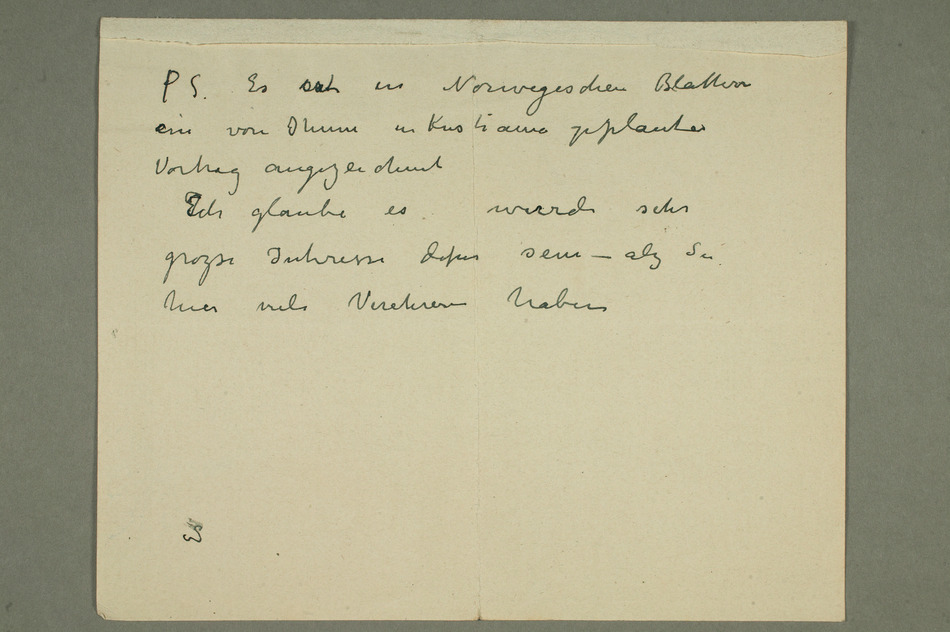 PS. Es ist in Norwegischen Blattern
ein von Ihnen in Kristiania geplanter
Vortrag angezeichnet
Ich glaube es wurde sehr
grosse Interesse dafur sein – als Sie
hier viele Verehrern haben